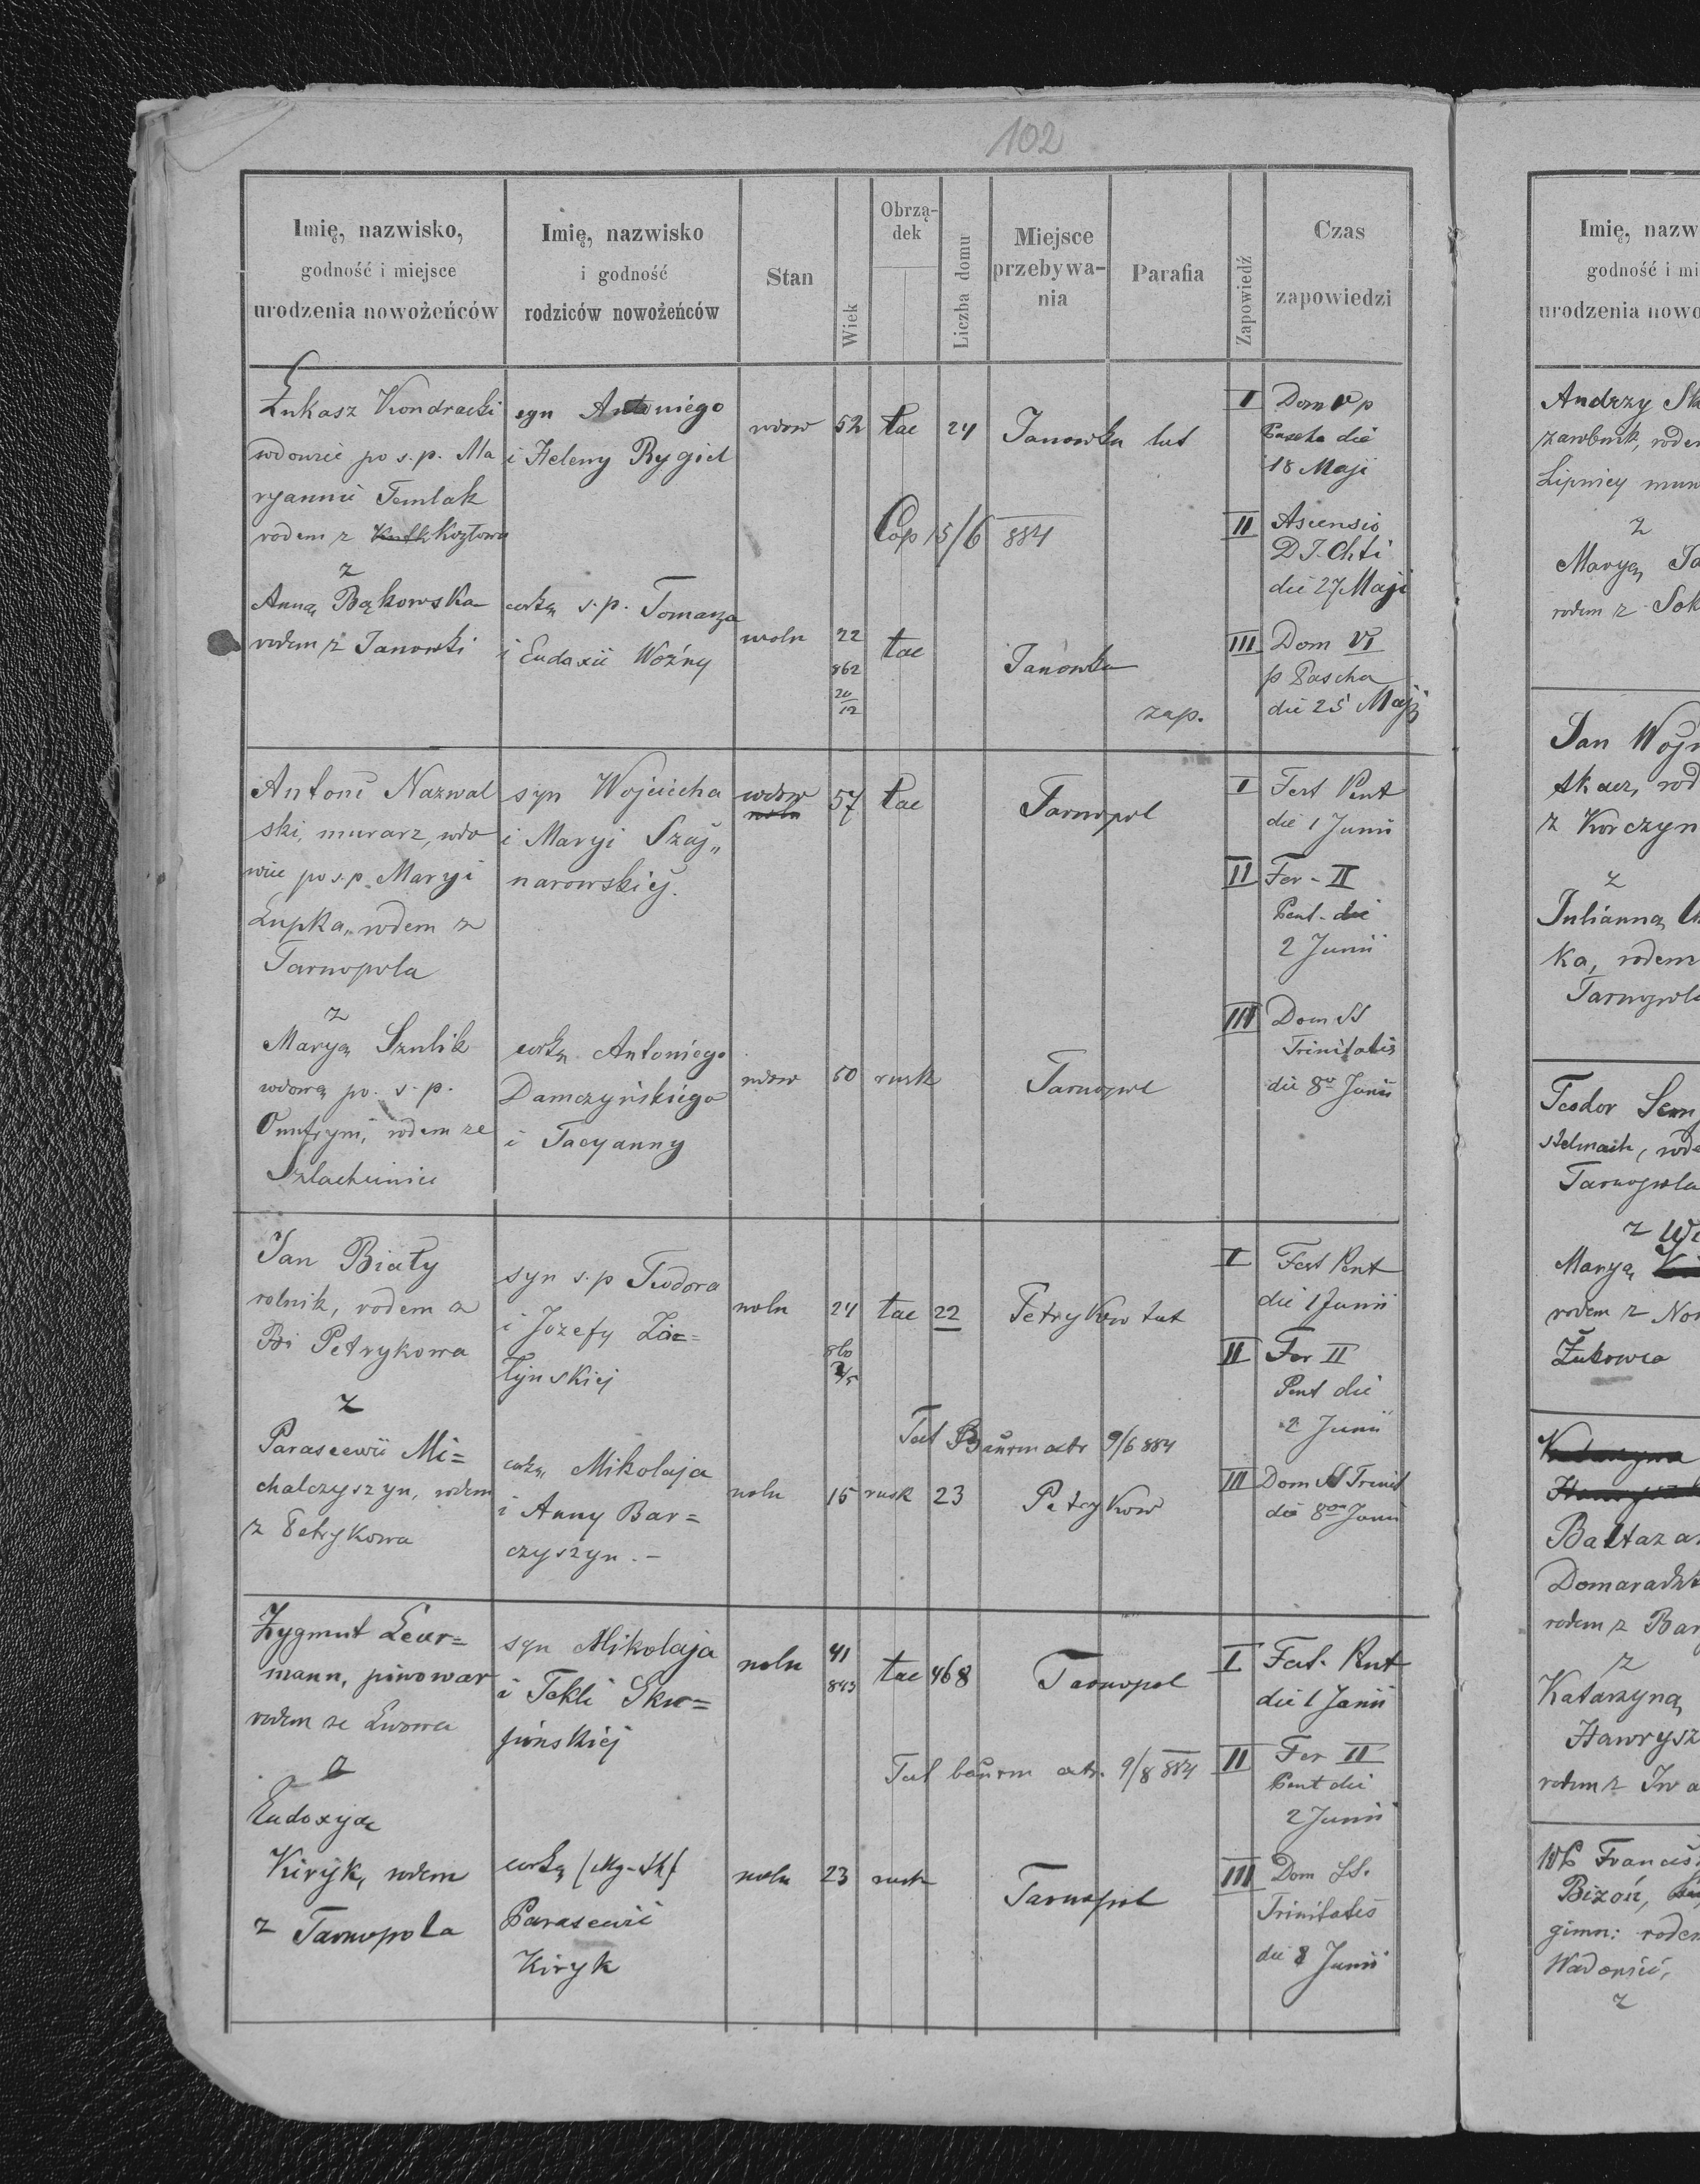 102
Imię, nazwisko,
godność i miejsce
urodzenia nowożeńców
Imię, nazwisko
i godność
rodziców nowożeńców
Stan
Wiek
Obrzą-
dek
Liczba domu
Miejsce
przebywa-
nia
Parafia
Zapowiedź
Czas
zapowiedzi
Łukasz Kondracki
wdowiec po s.p. Ma
ryannie Temlak
rodem z Kozłowa
z
Anną Bąkowska
rodem z Janowki
syn Antoniego
i Heleny Rygiel
córką s.p. Tomasza
i Eudoxii Woźny
wdow 52 łac 24 Janowka tut
Cop 15/6 884
woln 22 łac Janowka
862
20
12
zap.
I Dom V p
Pascha die
18 Maji
II Ascensio
D J. Chti
die 27 Maji
III Dom VI
p Pascha
die 25 Maji
Antoni Nazwal
ski, murarz, wdo
wiec po s.p. Maryi
Łupka, rodem z
Tarnopola
z
Maryą Szulik
wdową po s.p.
rodem ze
Szlachciniec
syn Wojciecha
i Maryi Szaj„
narowskiej.
córką Antoniego
Damczyńskiego
i Tacyanny
wdow 57 łac Tarnopol
woln
wdow 50 rusk Tarnopol
I Fest Pent
die 1 Junii
II Fer - II
Pent. die
2 Junii
III Dom SS
Trinitatis
die 8va Junii
Jan Biały
rolnik, rodem z
Petrykowa
z
Parascewii Mi=
chalczyszyn, rodem
z Petrykowa
syn s.p Teodora
i Józefy
tyńskiej
córką Mikołaja
i Anny Bar=
czyszyn. -
woln 24 łac 22 Petryków tut
860
Tat 9/6 884
woln 15 rusk 23 Petryków
I Fest Pent
die 1 Junii
II Fer II
Pent die
2 Junii
III Dom SS Trinit
die 8va Junii
Zygmut Leur=
mann, piwowar
rodem ze Lwowa
z
Eudoxya
Kiryk, rodem
z Tarnopola
syn Mikołaja
i Tekli
córką
Parascewii
Kiryk
woln 41 łac 468 Tarnopol
843
9/8 884
woln 23 rusk Tarnopol
I Fest. Pent
die 1 Junii
II Fer II
Pent die
2 Junii
III Dom SS.
Trinitatis
die 8 Junii
Imię, nazw
godność i mi
urodzenia nowo
Andrzy
zarobnik, rodem
Lipnicy
z
Maryą
rodem z Sok
Jan
tkacz, rod
z Korczyn
z
Julianną
ka, rodem
Tarnopola
Teodor Sem
stelmach, rode
Tarnopola
z
Maryą
rodem z Now
Żukowca
Katarzyna
Baltazar
Domaradzk
rodem z Bar
z
Katarzyną
Hawrysz
rodem z
Francis
Bizoń,
gimn: rodem
Wadowic,
z